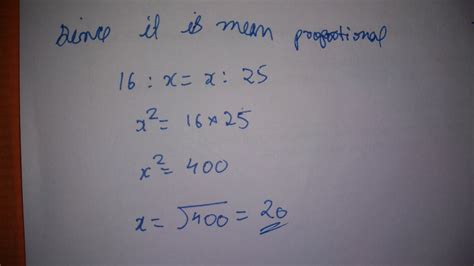 Since it is mean propotional
16 : x = x : 25
x² = 16 × 25
x² = 400
x = √400 = 20